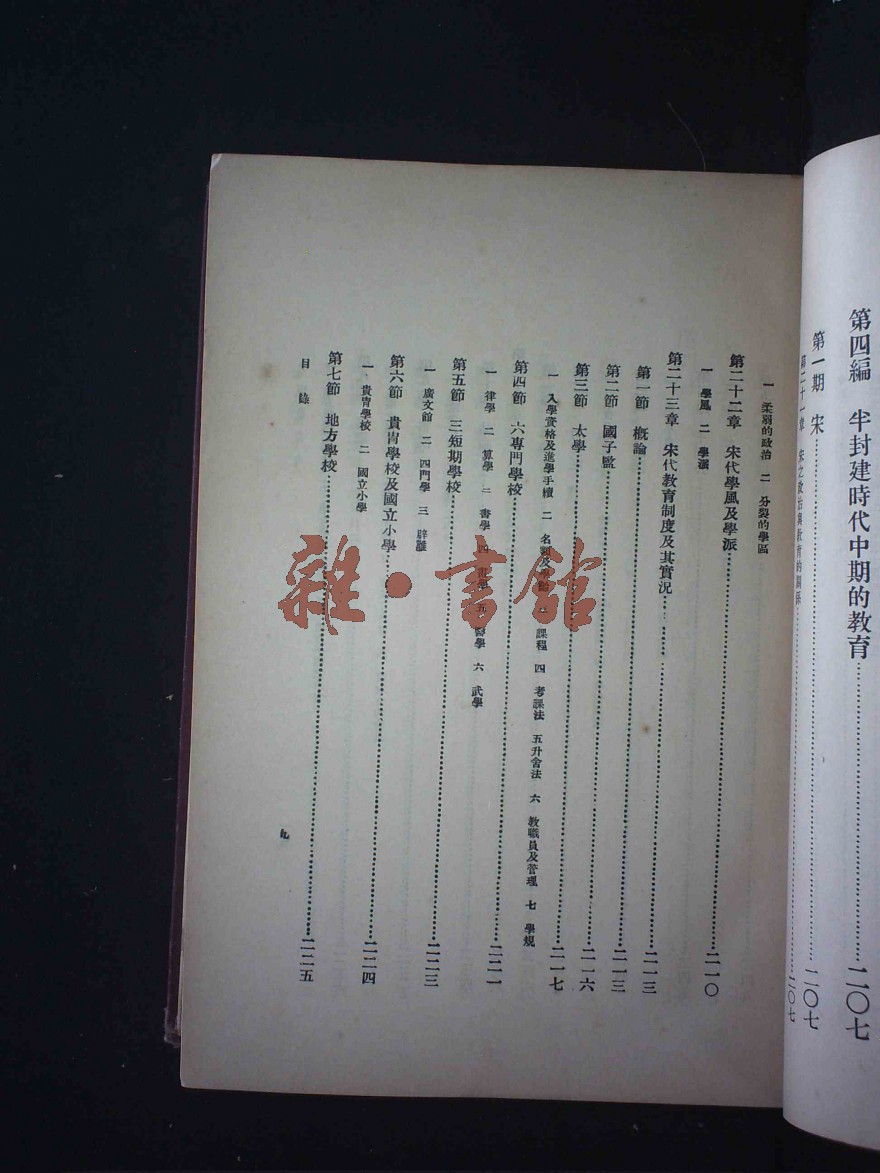 第四編　半封建時代中期的教育……二〇七
第一期　宋……二〇七
第二十一章　宋之政治與教育的關係……二〇七
一　柔弱的政治　二　分裂的學區
第二十二章　宋代學風及學派……二一〇
一　學風　二　學派
第二十三章　宋代教育制度及其實況……二一三
第一節　概論……二一三
第二節　國子監……二一六
第三節　太學……二一七
一　入學資格及進學手續　二　名額及　課程　四　考課法　五升舍法　六　教職員及管理　七　學規
第四節　六專門學校……二二一
一　律學　二　算學　三　書學　四　畫學　五　醫學　六　武學
第五節　三短期學校……二二三
一　廣文館　二　四門學　三　辟雝
第六節　貴胄學校及國立小學……二二四
一　貴胄學校　二　國立小學
第七節　地方學校……二二五
目錄
九
雜·書館